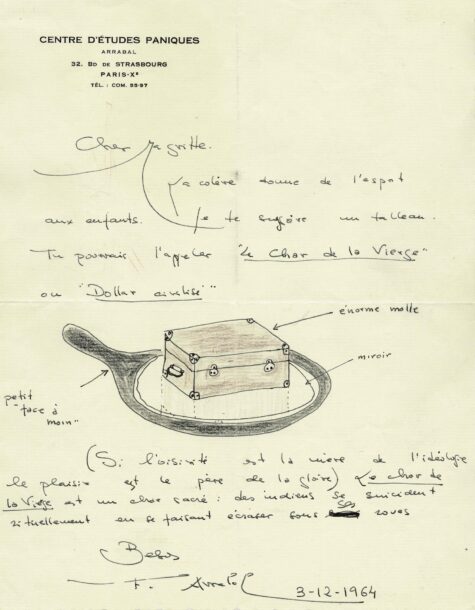 CENTRE D'ÉTUDES PANIQUES
ARRABAL
32. BD DE STRASBOURG
PARIS-Xe
TÉL. : COM. 55-97
Cher Magritte.
La colère donne de l'esprit
aux enfants. Je te suggère un tableau.
Tu pourrais l'appeler "Le Char de la Vierge"
ou "Dollar civilisé"
énorme malle
miroir
petit
"face à
main"
(Si l'oisivité est la mère de l'idéologie
le plaisir est le père de la gloire) Le char de
la Vierge est un char sacré : des indiens se suicident
rituellement en se faisant écraser sous ses roues
Besos
F. Arrabal
3-12-1964